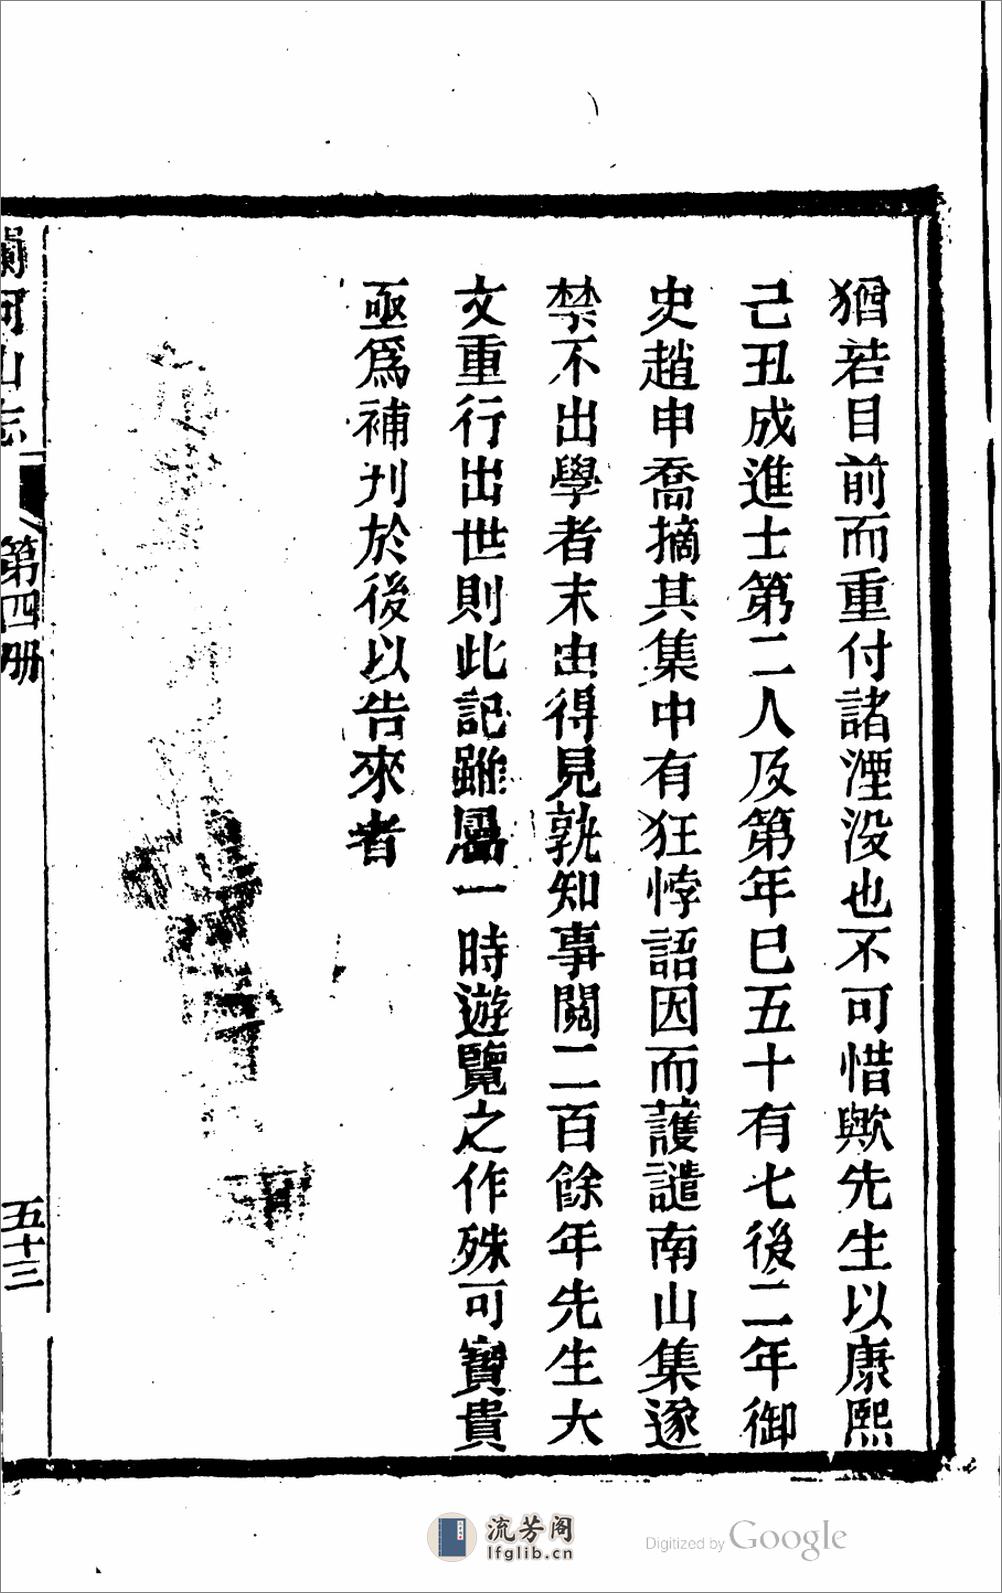 猶若目前而重付諸湮没也不可惜歟先生以康熙
己丑成進士第二人及第年巳五十有七後二年御
史趙申喬摘其集中有狂悖語因而䕶譴南山集遂
禁不出學者末由得見孰知事閱二百餘年先生大
文重行出世則此記雖屬一時遊覽之作殊可寶貴
亟爲補刋於後以告來者
河山志
第四册
五十三
流芳阁
lfglib.cn
Digitized by Google